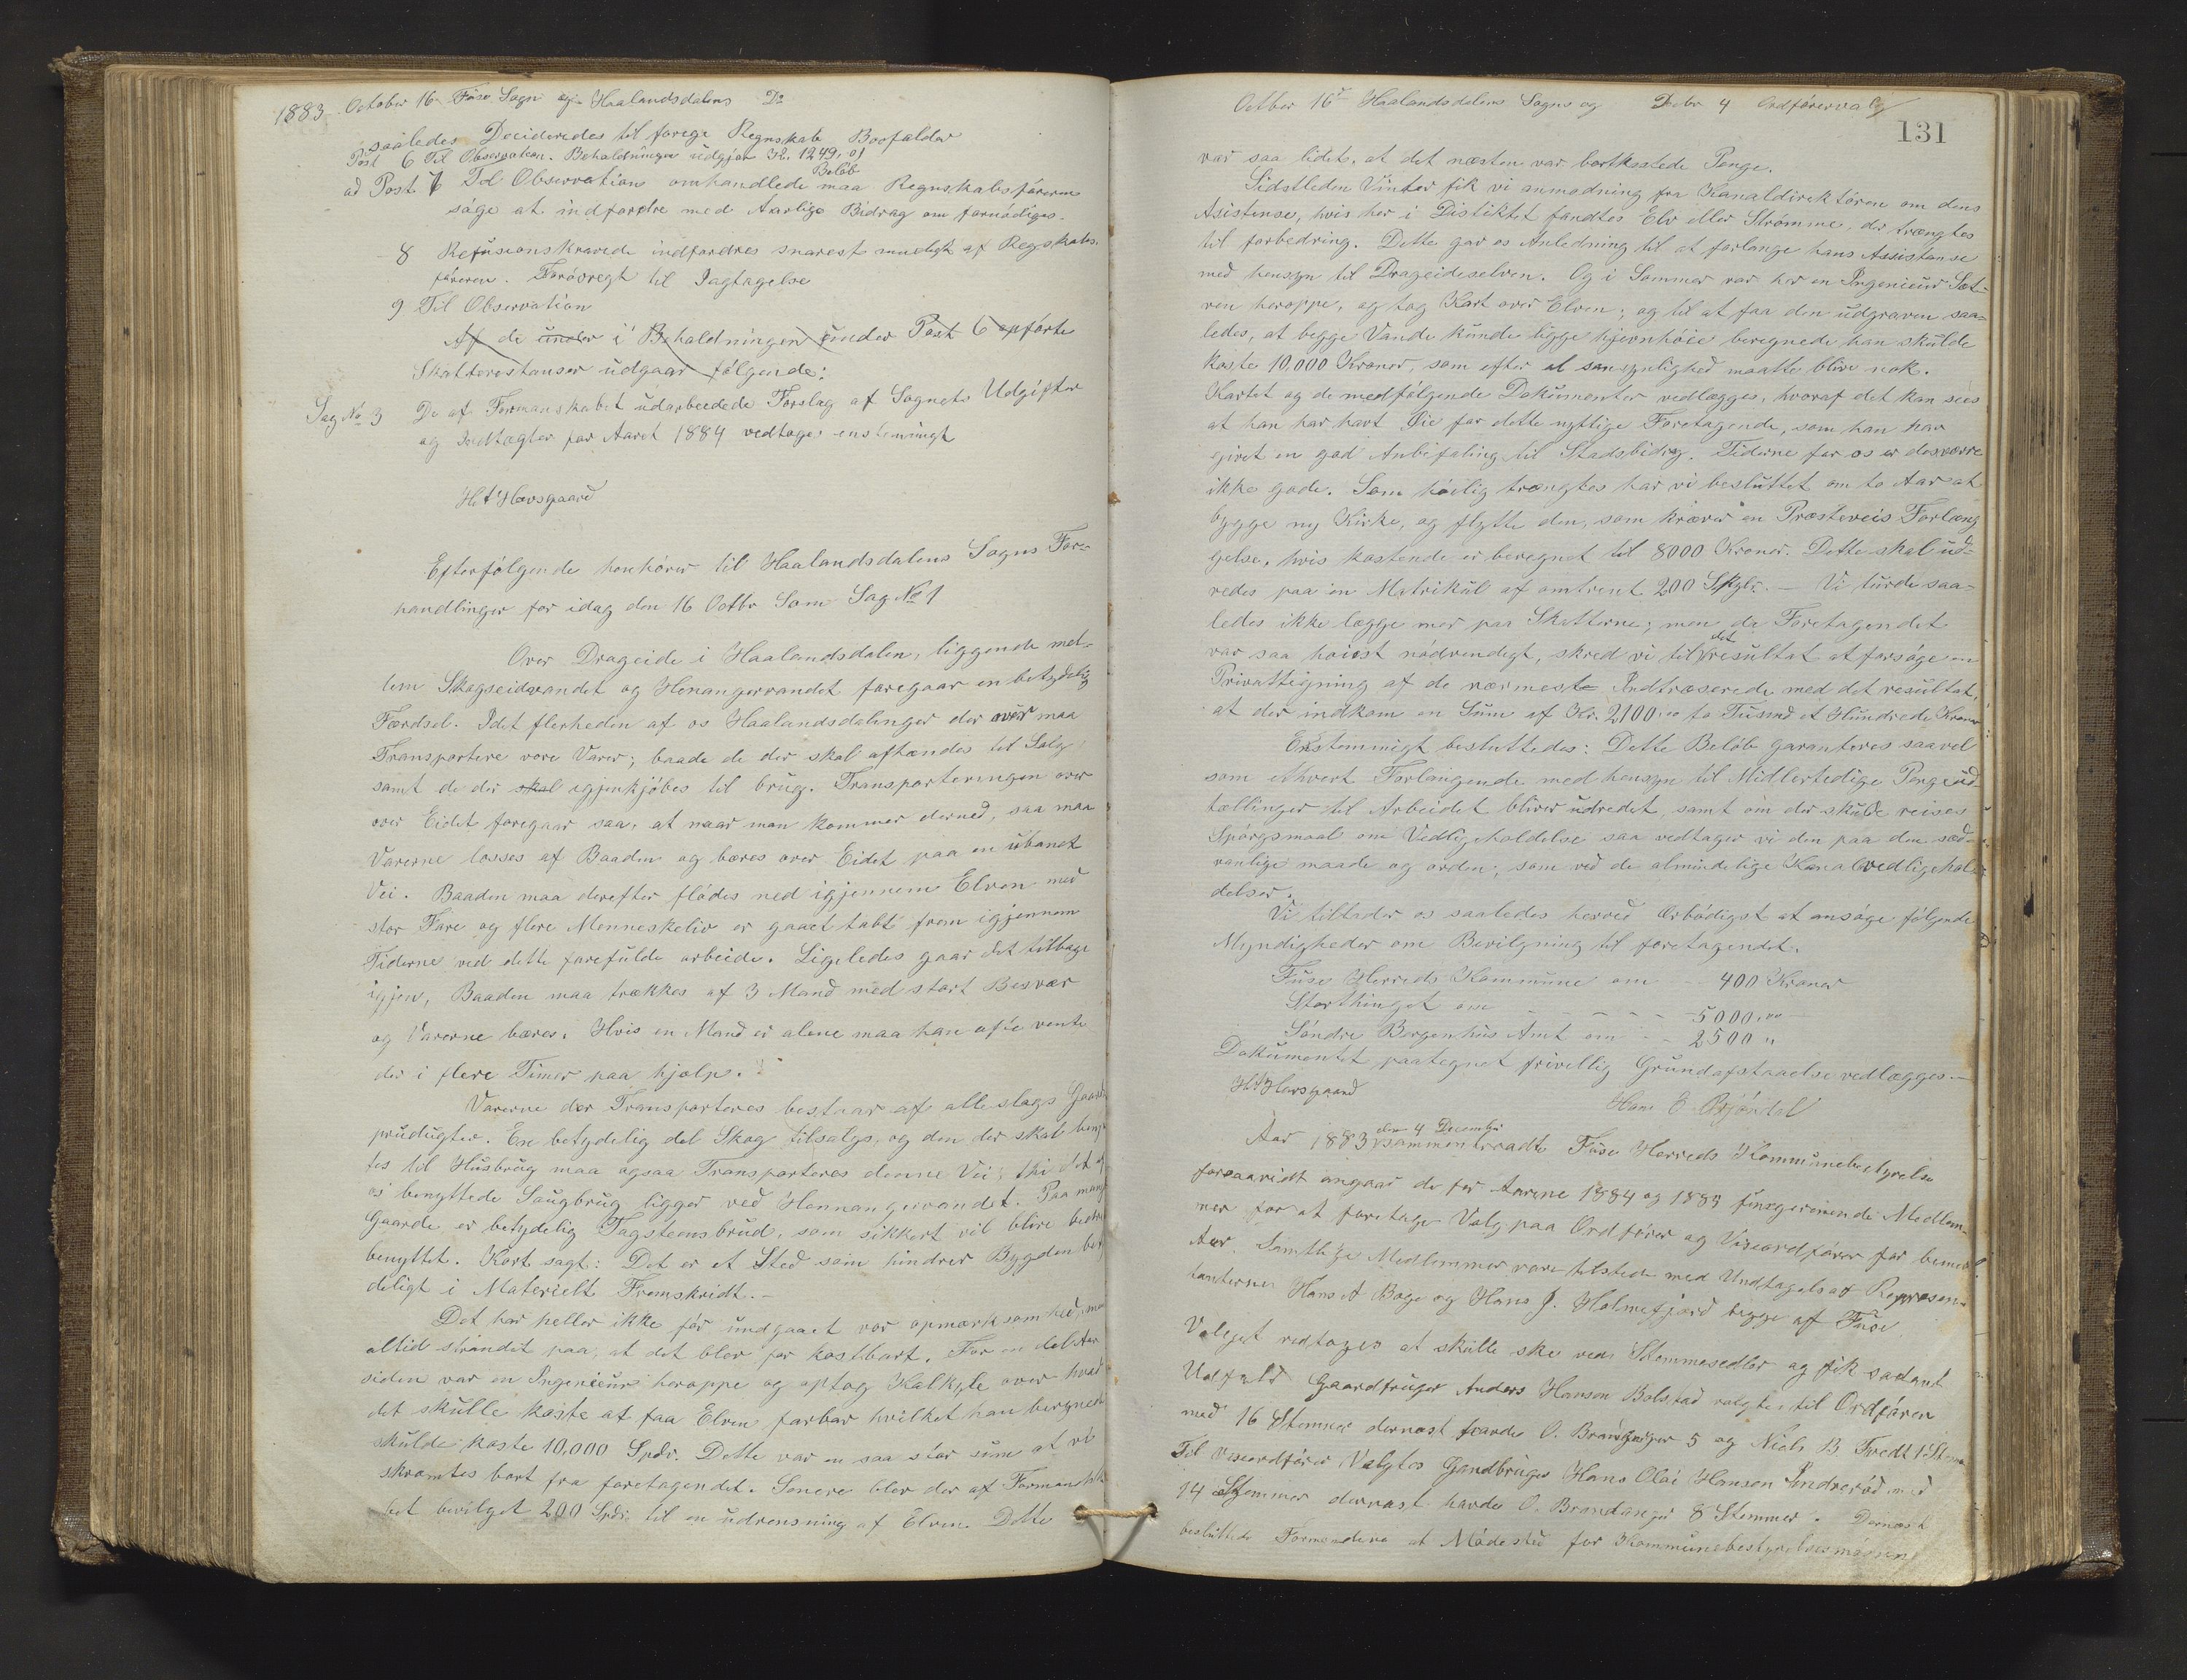 1883 October 16 Fuse Sogn og Haalandsdalens Do
saaledes Decideredes til forege Regnskab
Post 6 Til Observation. Behaldningen udgjør Kr. 1249,01
ad Post 7 Til Observation omhandlede Beløb maa Regnskabsføreren
søge at indfordre med Aarlige Bidrag om fornødiges.
8 Refusionskravede indfordres snarest muligt af Regskabs,
føreren. Forøvregt til Iagtagelse
9 Til Observation
Af de under i Behaldningen under Post 6 opførte
Skatterestanser udgaar følgende:
Sag No 3 De af Formanskabet udarbeidede Forslag af Sognets Udgifter
og Indtægter for Aaret 1884 vedtoges enstemmigt
H A Havsgaard
Efterfølgende henhører til Haalandsdalens Sogns For-
handlinger for idag den 16 Octbr Som Sag No 1
Over Drageide i Haalandsdalen, liggende mel-
lem Skogseidvandet og Henangervandet foregaar en betydelig
Færdsel. Idet flerheden af os Haalandsdalinger der over maa
Transportere vore Varer; baade de der skal afhændes til Salg
samt de der skal igjenkjøbes til brug. Transporteringen over
over Eidet foregaar saa, at naar man kommer derned, saa maa
Varerne losses af Baaden og bæres over Eidet paa en ubanet
Vei. Baaden maa derefter flødes ned igjennem Elven med
stor Fare og flere Menneskeliv er gaaet tabt frem igjennem
Tiderne ved dette farefulde arbeide. Ligeledes gaar det tilbage
igjen, Baaden maa trækkes af 3 Mand med stort Besvær
og Varerne bæres. Hvis en Mand er alene maa han ofte vente
der i flere Timer paa hjælp.
Varerne der Transporteres bestaar af alle slags Gaards
prudugter. En betydelig del Skog tilsalgs, og den der skal beny
tes til Husbrug maa ogsaa Transporteres denne Vei; thi det af
os benyttede Saugbrug ligger ved Hennangervandet. Paa mange
Gaarde er betydelig Tagsteensbrud, som sikkert vil blive bedre
benyttet. Kort sagt: Det er et Sted som hindrer Bygden bety
deligt i Materielt Fremskridt.-
Det har heller ikke før undgaaet vor opmærksomhed, men
altid strandet paa, at det blev for kostbart. For en del Aar
siden var en Ingeniør heroppe og optog Kalkyle over hvad
det skulle koste at faa Elven farbar hvilket han beregnede
skulde koste 10,000 Spdr. Dette var en saa stor sum at vi
skræmtes bort fra foretagendet. Senere blev der af Formandska
bet bevilget 200 Spdr. til en udrensning af Elven. Dette
Octber 16de Haalandsdalens Sogns og Decbr 4 Ordførervalg
131
var saa lidet, at det næsten var bortkastede Penge.
Sidstleden Vinter fik vi anmodning fra Kanaldirektøren om dens
Asistense, hvis her i Distiktet fandtes Elv eller Strømme, der trængtes
til forbedring. Dette gav os Anledning til at forlange hans Assistanse
med hensyn til Drageideselven. Og i Sommer var her en Ingenieur Sæt-
ren heroppe, og tog Kart over Elven; og til at faa den udgraven saa-
ledes, at begge Vande kunde ligge hjevnhøie beregnede han skulde
koste 10,000 Kroner, som efter al sansynlighed maatte blive nok.
Kartet og de medfølgende Dokumenter vedlægges, hvoraf det kan sees
at han har havt Øie for dette nyttige Foretagende, som han har
givet en god Anbefaling til Stadsbidrag. Tiderne for os er desværre
ikke gode. Som høilig trængtes har vi besluttet om to Aar at
bygge ny Kirke, og flytte den, som kræver en Præsteveis Forlæng
gelse, hvis kostende er beregnet til 8000 Kroner. Dette skal ud-
redes paa en Matrikul af omtrent 200 Skylr.- Vi turde saa-
ledes ikke lægge mer paa Skatterne; men da Foretagendet
var saa høiest nødvendigt, skred vi til det resultat at forsøge en
Privatligning af de nærmeste Indtræserede med det resultat,
at der indkom en Sum af Kr. 2100,00 to Tusend et Hundrede Kroner
Enstemmigt besluttedes: Dette Beløb garanteres saavel
som ethvert Forlangende med hensyn til Midlertidige Pengeud-
tællinger til Arbeidet bliver udredet, samt om der skulde reises
Spørgsmaal om Vedligeholdelse saa vedtager vi den paa den sæd-
vanlige maade og orden; som ved de almindelige Kanalvedligehol-
delser.
Vi tillader os saaledes herved ærbødigst at ansøge følgende
Myndigheder om Bevilgning til foretagendet.
Fuse Herreds Kommune om - - 400 Kroner
Storthinget om - - - - - - 5000,00
Søndre Bergenhus Amt om - - 2500 "
Dokumentet paategnet frivillig Grundafstaaelse vedlægges.-
H A Havsgaard
Hans E Bjøndal
Aar 1883 den 4 December sammentraadte Fuse Herreds Kommunebestyrelse
forsaavidt angaar de for Aarene 1884 og 1885 fungerende Medlem-
mer for at foretage Valg paa Ordfører og Viseordfører for bemel.
Aar. Samtlige Medlemmer vare tilstede med Undtagels af Represen-
tanterne Hans A Boge og Hans J. Holmefjord begge af Fuse
Valget vedtoges at skulle ske ved Stemmesedler og fik sadant
Udfald Gaardbruger Anders Hanson Bolstad valgtes til Ordføren
med 16 Stemmer dernæst havde O. Brandanger 5 og Niels B Tvedt 1 Stem
Til viseordfører Valgtes Gaardbruger Hans Olai Hansen Indrevød med
14 Stemmer dernæst havde O. Brandanger 8 Stemmer. Dernæst
besluttede Formændene at Mødested for Kommunebestyrelsesmøderne